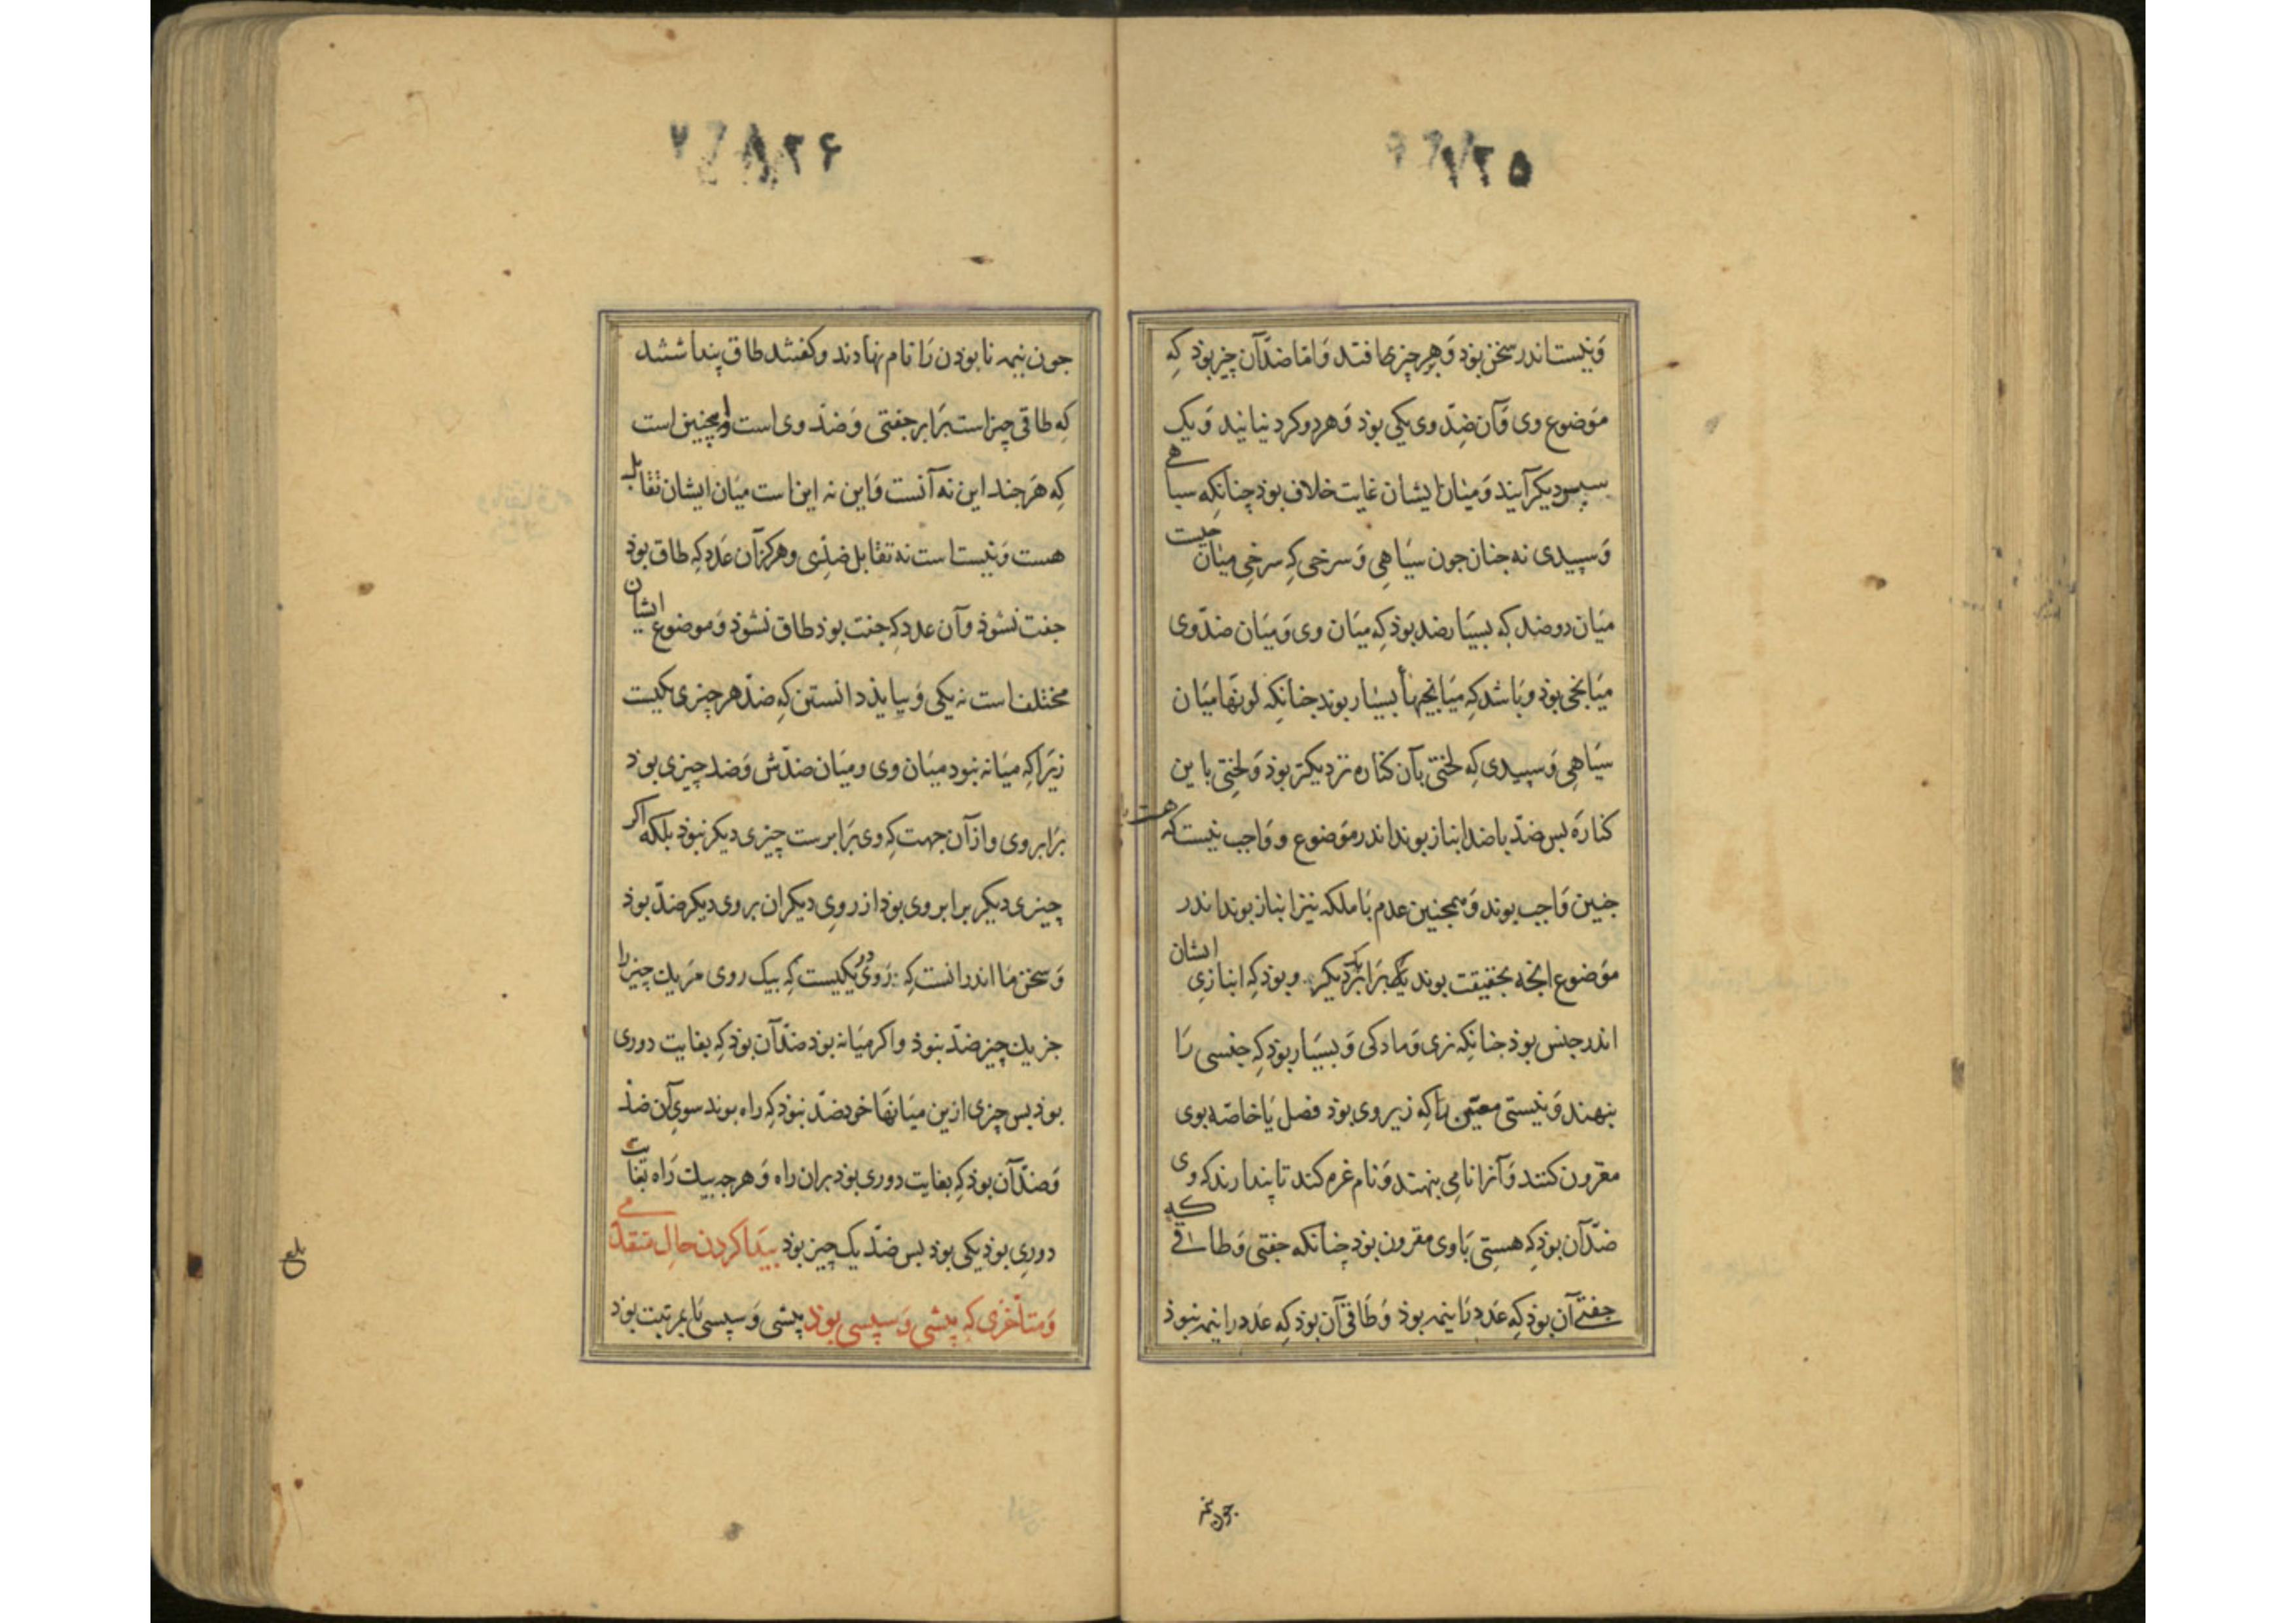 ۱۲۵
ونیست اندر سخن بوذ و بهر چیزی افتد و اما ضدّ آن چیز بوذ کِه
موضوع وی و آن ضِدّ وی یکی بوذ و هر دو کرد نیایند و یک
سپس دیکر آیند و میان ایشان غایت خلاف بوذ چنانکِه سیاهی
و سپیدی نه جنان جون سیاهِی و سرخی کِه سرخِی میانجیت
میان دو ضد کِه بسیار ضد بوذ کِه میان وی و میان ضدّ وی
میانجی بوذ و باشد کِه میانجیها بسیار بوند جنانکِه لونها میان
سیاهِی و سپیدی کِه لختی بآن کناره نزدیکتر بوذ و لختِی باین
کناره بس ضدّ با ضد انباز بوند اندر موضوع و واجب نیست که هست
جنین واجب بوند و همجنین عدم با ملکه نیز انباز بوند اندر
موضوع انجه بحقیقت بوند یک برابر دیکر و بوذ کِه انبازیِ ایشان
اندر جنس بوذ جنانکِه نری و مادکی و بسیار بوذ کِه جنسی را
بنهند و نیستی معیّن را کِه زیر وی بوذ فصل یا خاصّه بوی
مقرون کنند و آنرا نامِی بنهند و نام غره کند تا پندارند که وی
ضدّ آن بوذ کِه هستِی با وی مقرون بوذ چنانکه جفتی و طاقی کِه
جفتی آن بوذ کِه عدد را نیمه بوذ و طاقی آن بوذ کِه عدد را نیمه نبوذ
جون نیمه
۱۲۶
جون نیمه نابوذن را نام نهادند و کفتند طاق پنداشتند
کِه طاقی چیز است برابر جفتی و ضدّ وی است و همچنین است
کِه هر جند این نه آنست و این نه این است میان ایشان تقابل
هست و نیست است نه تقابل ضدّی و هرکز آن عدد کِه طاق بوذ
جفت نشوذ و آن عدد کِه جفت بوذ طاق نشوذ و موضوع ایشان
مختلف است نه یکی و بباید دانستن کِه ضدّ هر چیزی یکیست
زیرا کِه میانه نبود میان وی و میان ضدّش و ضد چیزی بوذ
برابر وی و از آن جهت کِه وی برابرست چیزی دیکر نبوذ بلکه اکر
چیزی دیکر برابر وی بوذ از روی دیکر ان بروی دیکر ضدّ بوذ
و سخن ما اندر انست کِه در روی یکیست کِه بیک روی مر یک چیز را
جز یک چیز ضدّ نبوذ و اکر میانه بوذ ضدّ آن بوذ کِه بغایت دوری
بوذ بس چیزی ازین میانها خود ضدّ نبوذ کِه راه بوند سوی آن ضدّ
و ضدّ آن بوذ کِه بغایت دوری بوذ بران راه و هر جه بیک راه بغایت
دوری بوذ یکی بوذ بس ضدّ یک چیز بوذ پیدا کردن حال متقدّمی
و متأخّری کِه پیشی و سپسی بوذ پیشی و سپسی یا بمرتبت بوذ
بلغ